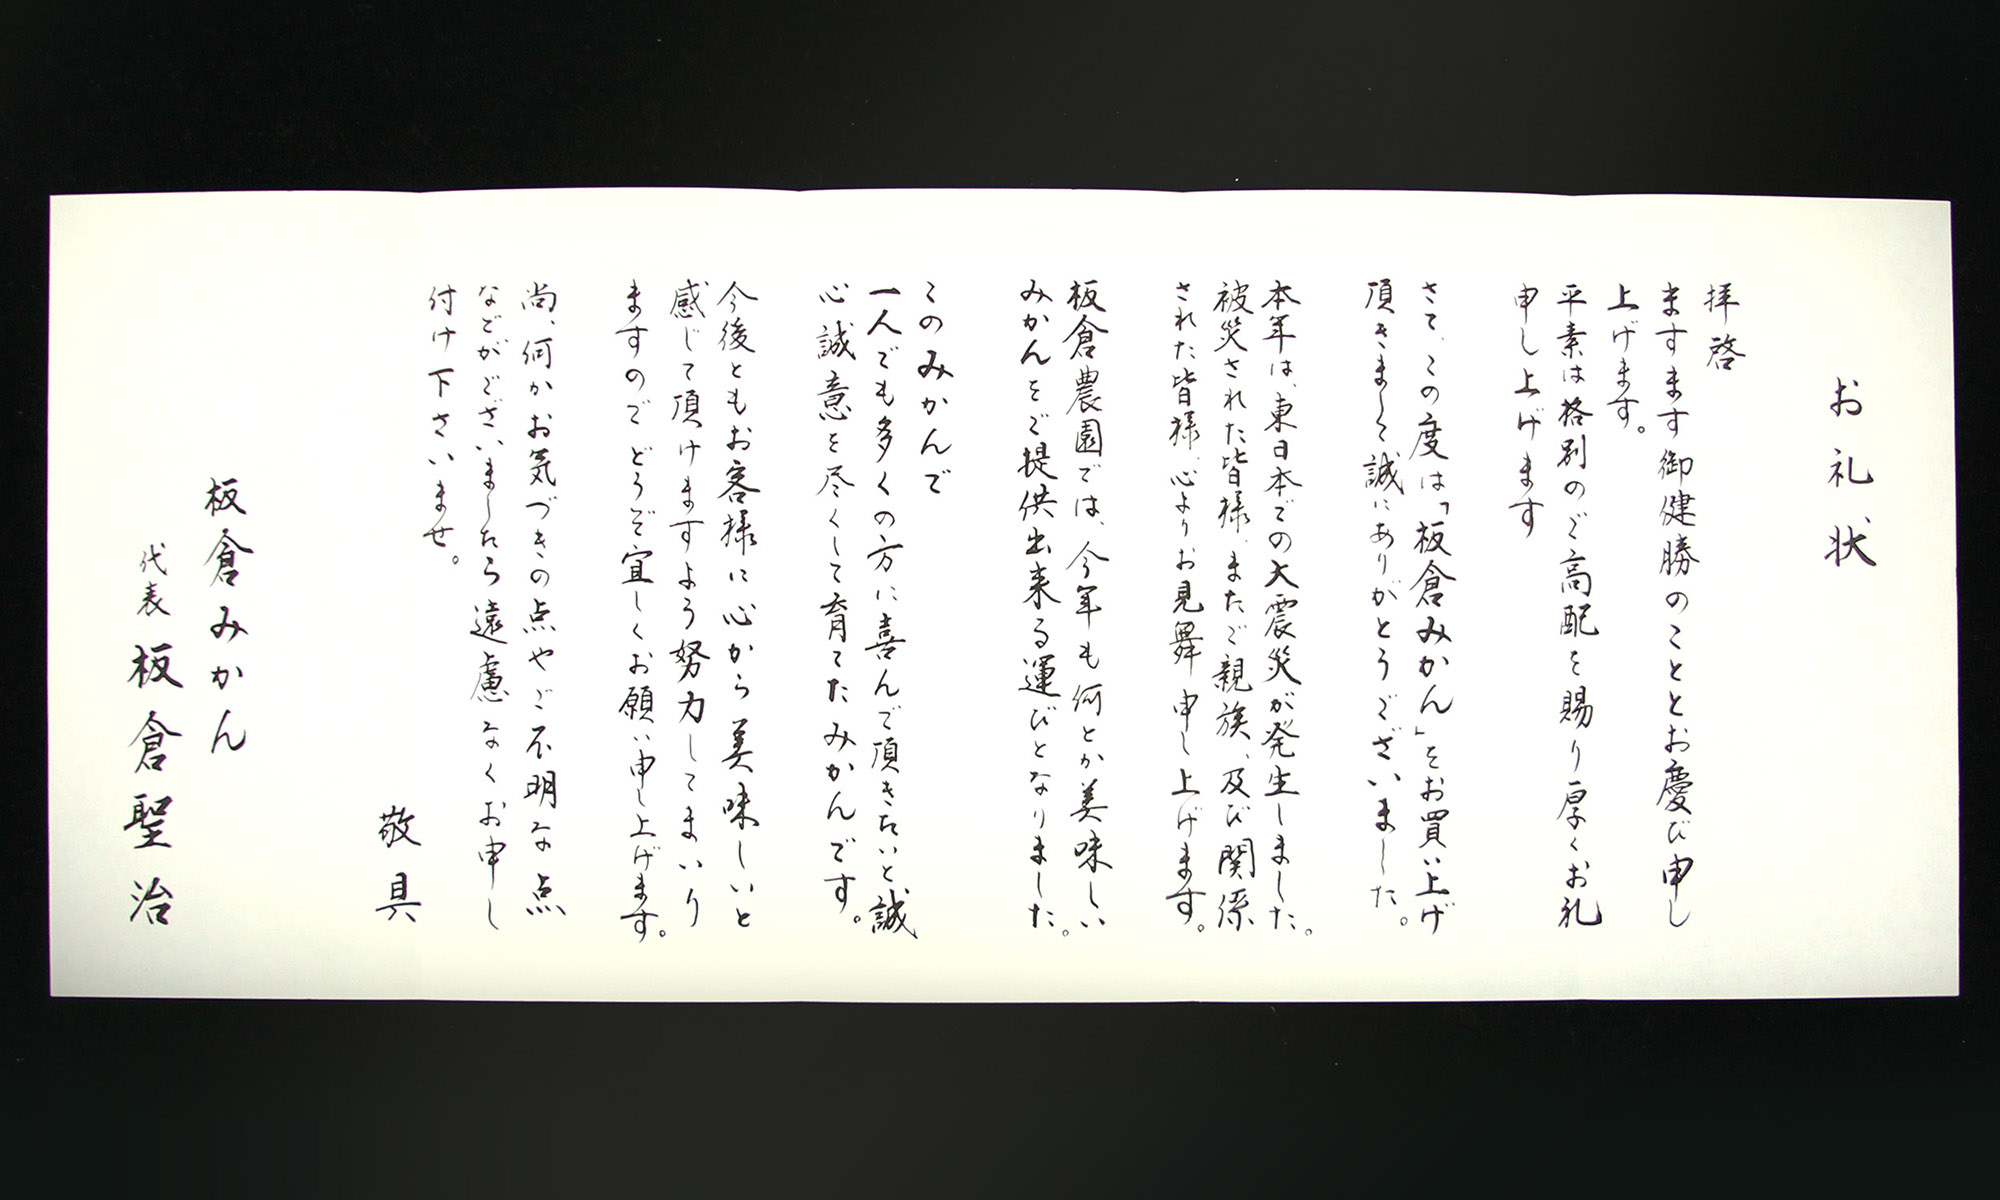 お礼状
拝啓
ますます御健勝のこととお慶び申し
上げます。
平素は格別のご高配を賜り厚くお礼
申し上げます
さて、この度は「板倉みかん」をお買い上げ
頂きまして誠にありがとうございました。
本年は、東日本での大震災が発生しました。
被災された皆様、またご親族、及び関係
された皆様、心よりお見舞申し上げます。
板倉農園では、今年も何とか美味しい
みかんをご提供出来る運びとなりました。
このみかんで
一人でも多くの方に喜んで頂きたいと誠
心誠意を尽くして育てたみかんです。
今後ともお客様に心から美味しいと
感じて頂けますよう努力してまいり
ますのでどうぞ宜しくお願い申し上げます。
尚、何かお気づきの点やご不明な点
などがございましたら遠慮なくお申し
付け下さいませ。
敬具
板倉みかん
代表 板倉聖治